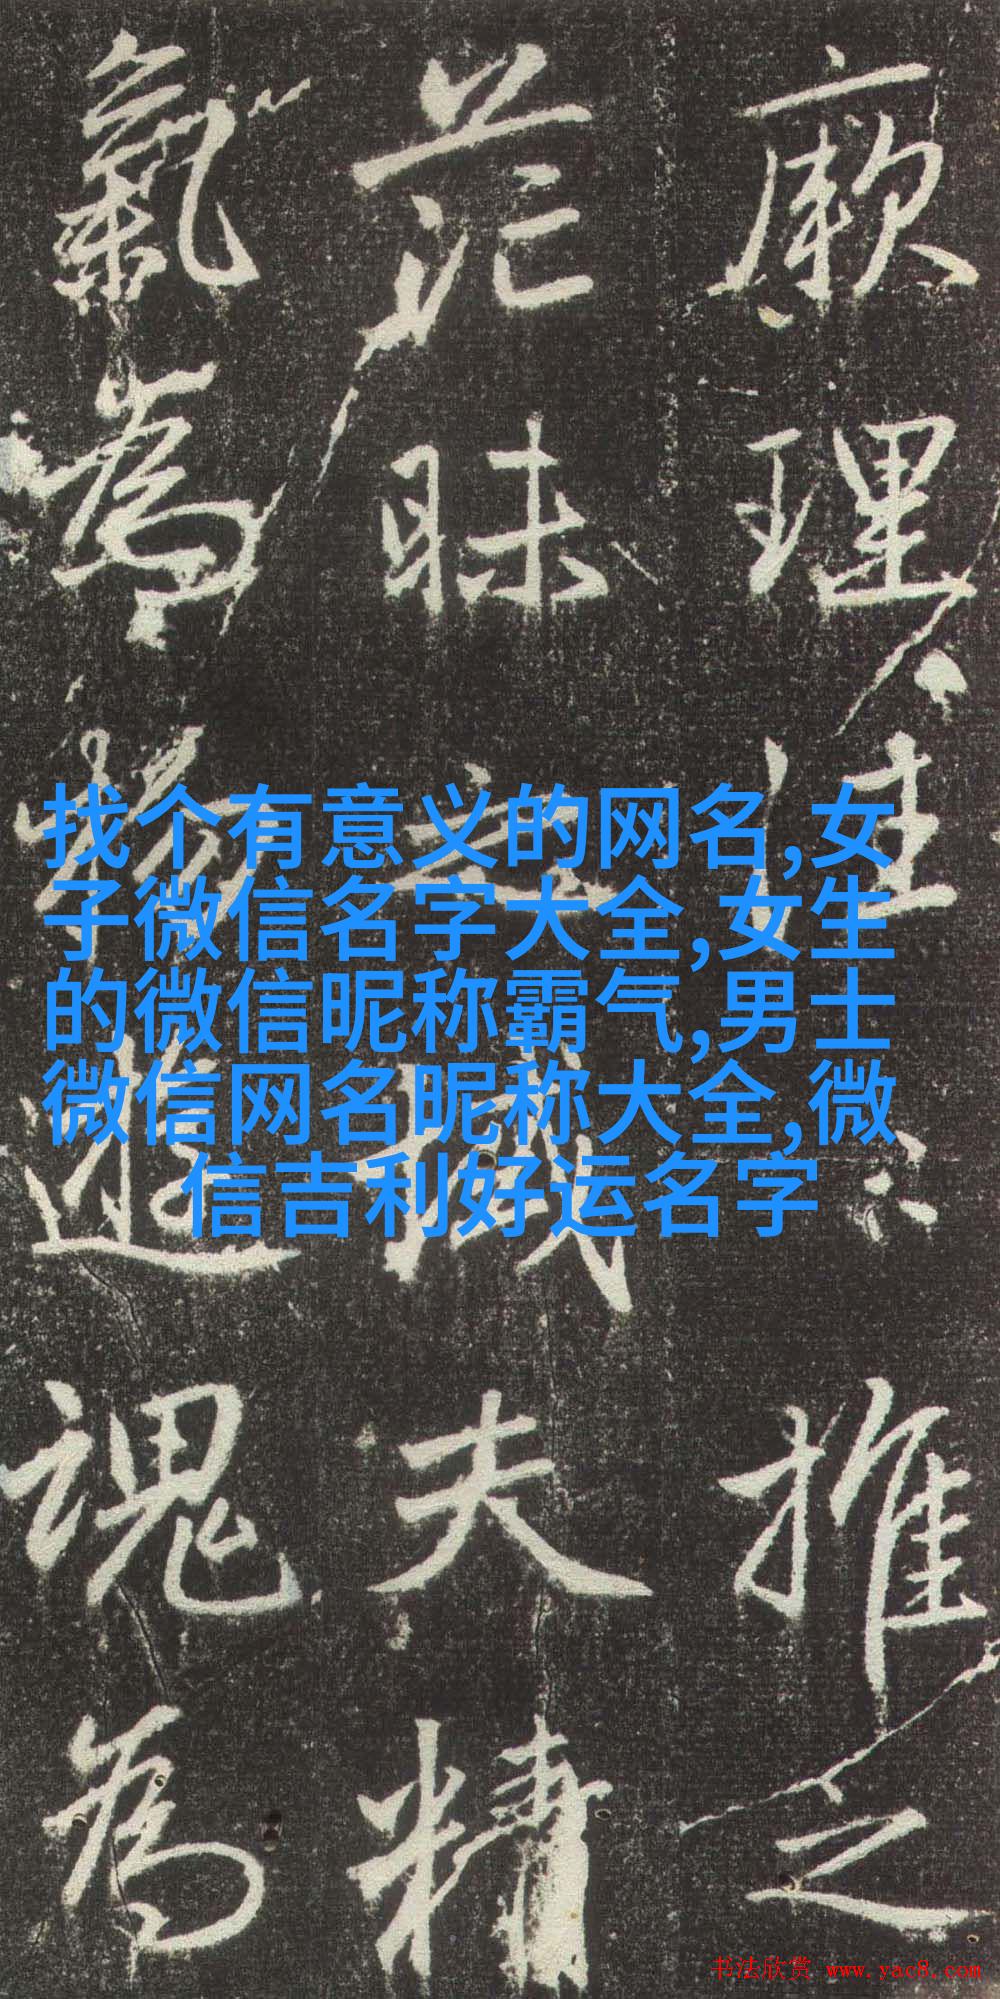 厥理性推之
茫昧之夫精
氣為物遊魂為
找个有意义的网名,女
子微信名字大全,女生
的微信昵称霸气,男士
微信网名昵称大全,微
信吉利好运名字
书法欣赏 www.yac8.com